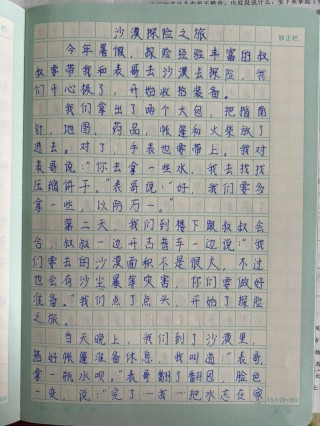 沙漠探险之旅
今年暑假，探险经验丰富的叔
叔要带我和表哥去沙漠去探险，我
们开心极了，开始收拾装备。
我们拿出了两个大包，把指南
针，地图，药品，帐篷和火柴放了
进去。对了，手表也要带上。我对
表哥说：“你去拿一些水，我去找找
压缩饼干。”表哥说：“好，我们要多
拿一些，以防万一。”
第二天，我们到楼下跟叔叔会
合，叔叔一边开吉普车一边说：“我
们要去的沙漠面积不是很大，不过
也会有沙尘暴等灾害，你们要做好
准备。”我们点了点头，开始了探险
之旅。
当天晚上，我们到了沙漠里，
搭好帐篷准备休息，我叫道：“表哥
拿一瓶水呗。”表哥翻了翻包，脸色
一变，说：“完了……我……把水忘在家
修正栏